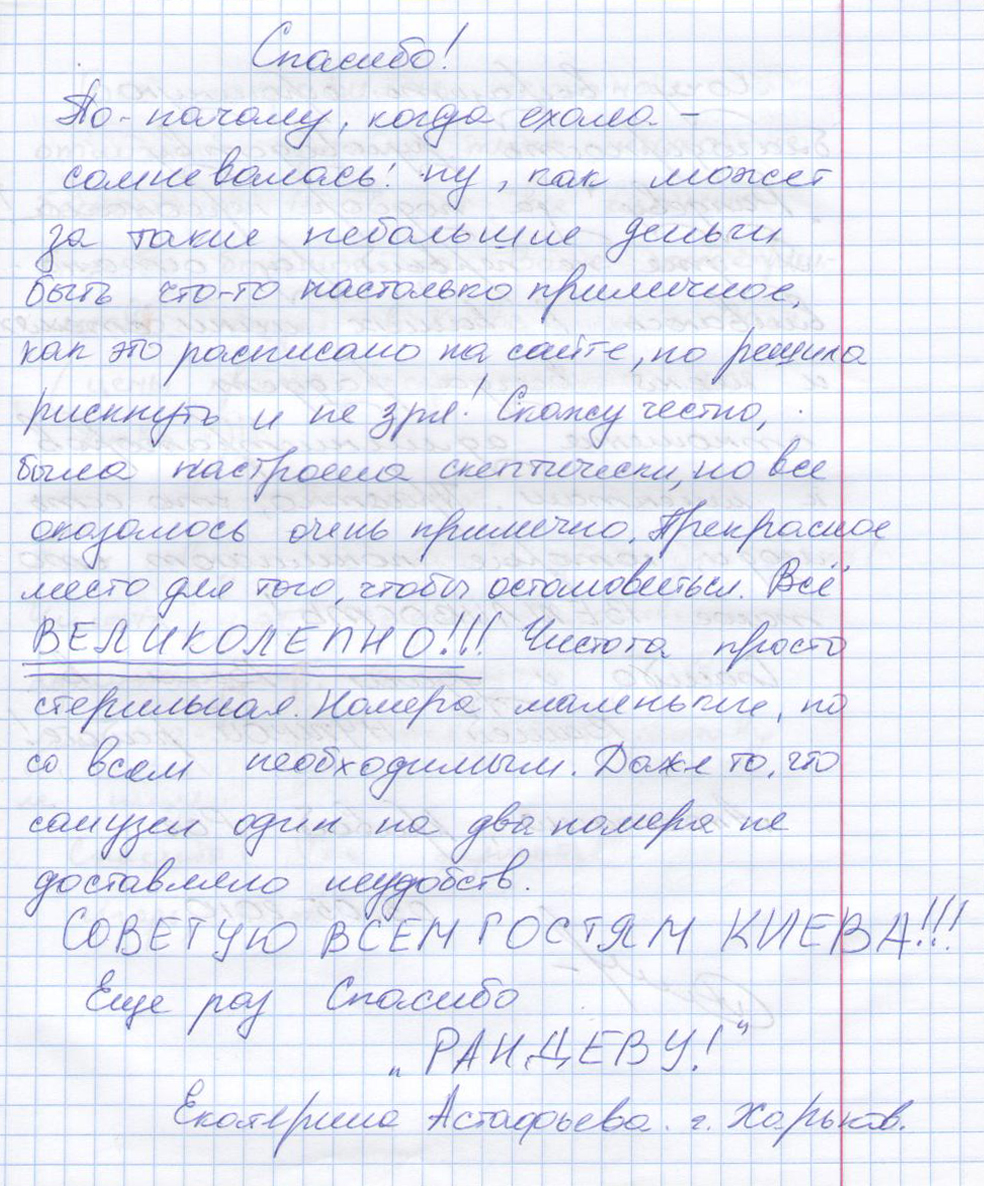 Спасибо!
По-началу, когда ехала -
сомневалась: ну, как может
за такие небольшие деньги
быть что-то настолько приличное,
как это расписано на сайте, но решила
рискнуть и не зря! Скажу честно,
была настроена скептически, но все
оказалось очень прилично. Прекрасное
место для того, чтобы остановиться. Всё
ВЕЛИКОЛЕПНО!!! Чистота просто
стерильная. Номера маленькие, но
со всем необходимым. Даже то, что
санузел один на два номера не
доставляло неудобств.
СОВЕТУЮ ВСЕМ ГОСТЯМ КИЕВА!!!
Еще раз Спасибо
„РАНДЕВУ!“
Екатерина Астафьева. г. Харьков.